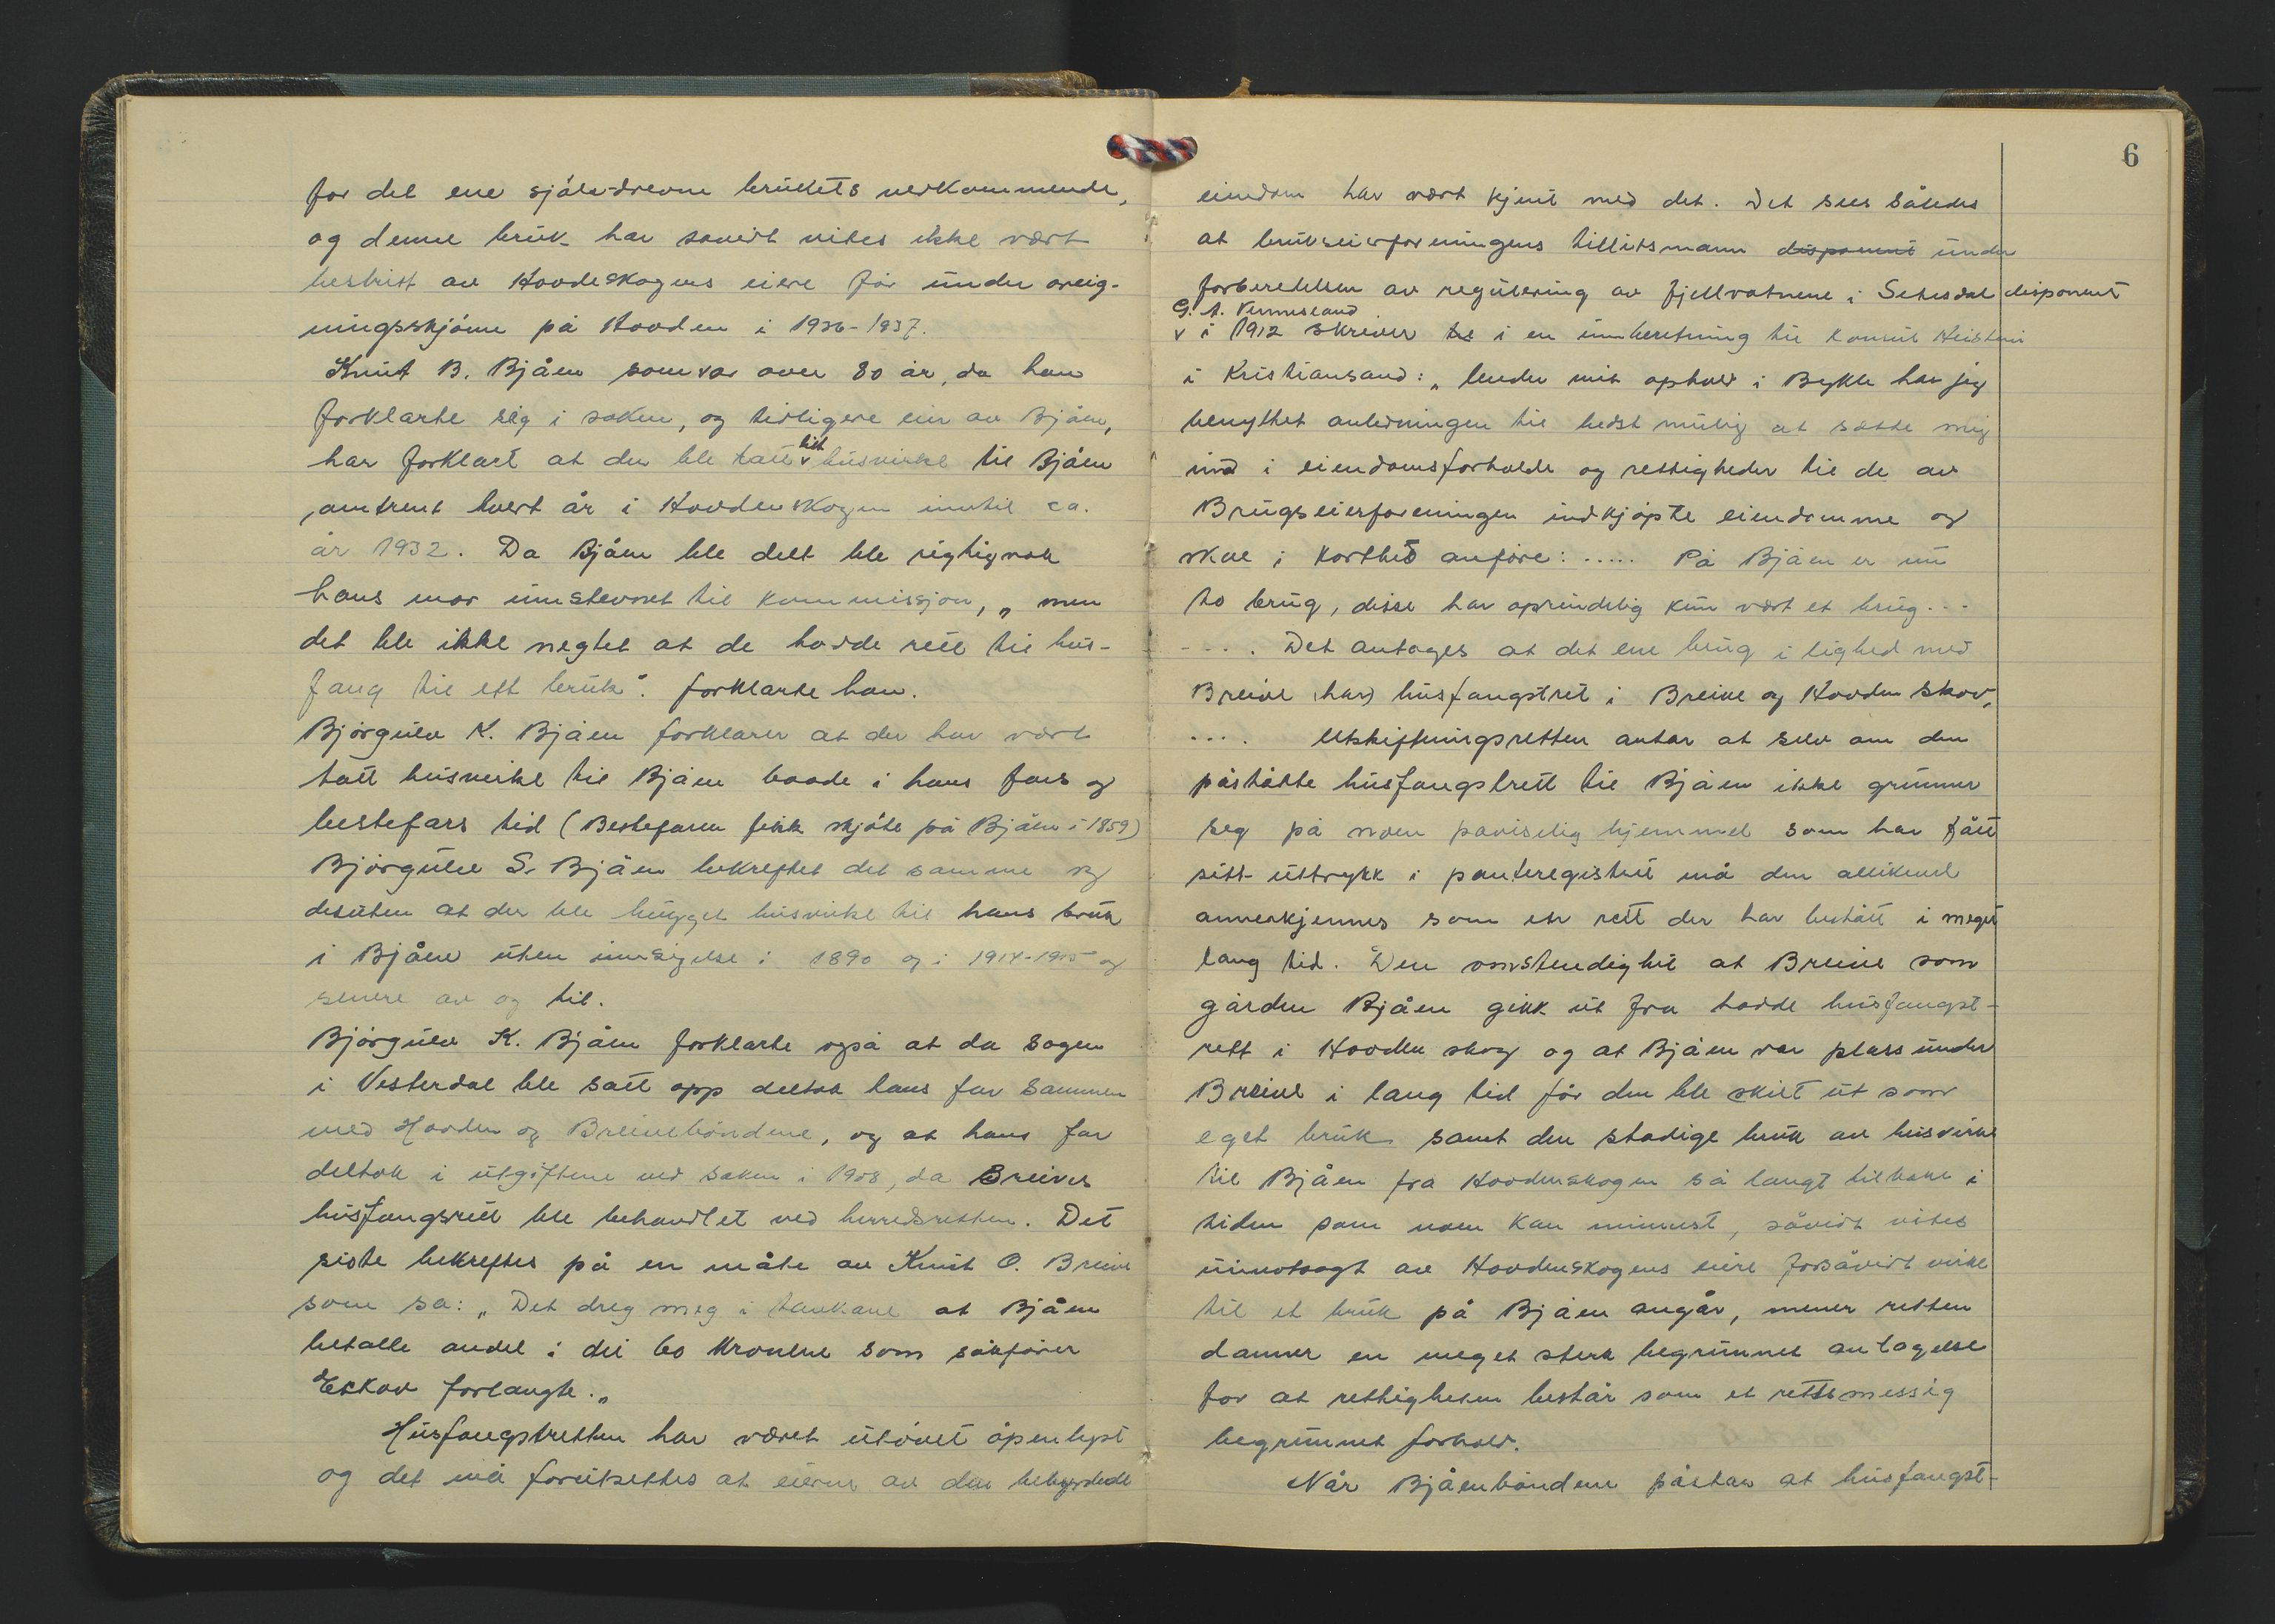 for det ene sjølvdrevne brukets vedkommende,
og denne bruk har såvidt vites ikke vært
bestritt av Hovdeskogens eiere før under oreig-
ningsskjønne på Hovden i 1936-1937.
Knut B. Bjåen som var over 80 år, da han
forklarte seg i saken, og tidligere eier av Bjåen,
har forklart at der ble tatt litt husvirke til Bjåen
omtrent hvert år i Hovdenskogen inntil ca.
år 1932. Da Bjåen ble delt ble rigtignok
hans mor innstevnet til kommissjon, „ men
det ble ikke negtet at de hadde rett til hus-
fang til ett bruk". forklarte han.
Bjørgulv K. Bjåen forklarer at der har vært
tatt husvirke til Bjåen baade i hans fars og
bestefars tid (Bestefaren fekk skjøte på Bjåen i 1859)
Bjørgulv S. Bjåen bekreftet det samme og
desuten at der ble hugget husvirke til hans bruk
i Bjåen uten innsigelse i 1890 og i 1914-1915 og
senere av og til.
Bjørgulv K. Bjåen forklarte også at da sagen
i Vesterdal ble satt opp deltok hans far sammen
med Hovden og Breivebøndene, og at hans far
deltok i utgiftene ved saken i 1908, da Breives
husfangsrett ble behandlet ved herredsretten. Det
siste bekreftes på en måte av Knut O. Breive
som sa: „ Det dreg meg i tankane at Bjåen
betalte andel i dei 60 kronene som sakfører
Eskov forlangte.„
Husfangstretten har været utøvet åpenlyst
og det må forutsettes at eierne av den behyrdede
6
eiendom har vært kjent med det. Det sees således
at brukseierforeningens tillitsmann disponent under
forberedelsen av regulering av fjellvatnene i Setesdal disponent
G. A. Vennesland
v i 1912 skriver i en innberetning til konsul Heistein
i Kristiansand: „ Under mit ophold i Bykle har jeg
benyttet anledningen til bedst mulig at sætte mig
ind i eiendomsforholde og rettigheder til de av
Brugseierforeningen indkjøpte eiendomme og
skal i korthed anføre: ..... På Bjåen er nu
to brug, disse har oprindelig kun vært et brug...
.... Det antages at det ene brug i lighed med
Breive (har) husfangstret i Breive og Hovden skov,
.... Utskiftningsretten antar at selv om den
påståtte husfangstrett til Bjåen ikke grunner
seg på noen påviselig hjemmel som har fått
sitt uttrykk i panteregistret må den allikevel
annerkjennes som en rett der har bestått i meget
lang tid. Den omstendighet at Breive som
gården Bjåen gikk ut fra hadde husfangst-
rett i Hovden skog og at Bjåen var plass under
Breive i lang tid før den ble skilt ut som
eget bruk samt den stadige bruk av husvirke
til Bjåen fra Hovdenskogen så langt tilbake i
tiden som noen kan minnest, såvidt vites
uimotsagt av Hovdenskogens eiere forsåvidt virke
til et bruk på Bjåen angår, mener retten
danner en meget sterk begrunnet antagelse
for at rettigheten består som et rettsmessig
begrunnet forhold.
Når Bjåenbøndene påstår at husfangst-